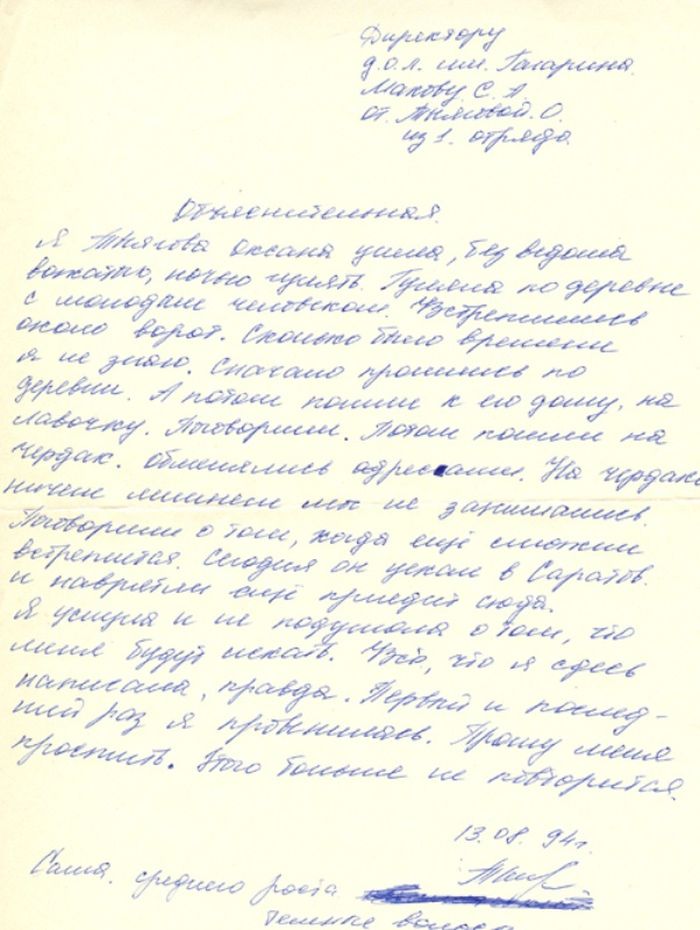 Директору
д.о.л. им. Гагарина
Макову С. А.
от Тнясовой. О.
из 1. отряда.
Объяснительная.
Я Тнясова Оксана ушла, без ведома
вожатых, ночью гулять. Гуляла по деревне
с молодым человеком. Встретились
около ворот. Сколько было времени
я не знаю. Сначало прошлись по
деревни. А потом пошли к его дому, на
лавочку. Поговорили. Потом пошли на
чердак. Обменялись адресами. На чердаке
ничем лишнем мы не занимались.
Поговорили о том, когда ещё сможем
встретится. Сегодня он уехал в Саратов.
и наврятли ещё приедит сюда.
Я ушла и не подумала о том, что
меня будут искать. Всё, что я сдесь
написала, правда. Первый и послед-
ний раз я провинилась. Прошу меня
простить. Этого больше не повторится.
13.08.94г.
Саша. среднего роста
темные